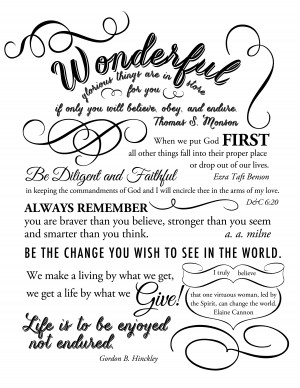 Wonderful
glorious things are in store
for you
if only you will believe, obey, and endure.
Thomas S. Monson
When we put God FIRST
all other things fall into their proper place
or drop out of our lives.
Ezra Taft Benson
Be Diligent and Faithful
in keeping the commandments of God and I will encircle thee in the arms of my love.
D&C 6:20
ALWAYS REMEMBER
you are braver than you believe, stronger than you seem
and smarter than you think.
a. a. milne
BE THE CHANGE YOU WISH TO SEE IN THE WORLD.
We make a living by what we get,
we get a life by what we Give!
I truly believe
that one virtuous woman, led by
the Spirit, can change the world.
Elaine Cannon
Life is to be enjoyed
not endured.
Gordon B. Hinckley